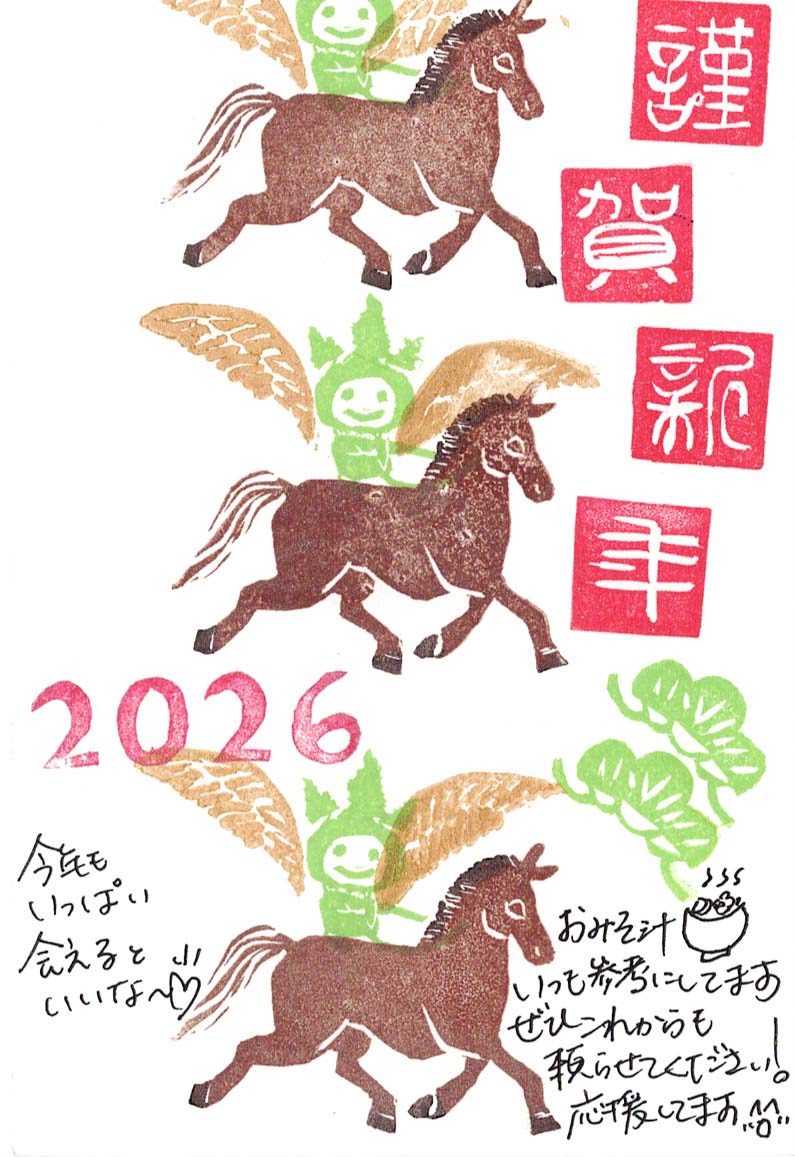 謹賀新年
2026
今年も
いっぱい
会えると
いいな〜
おみそ汁
いつも参考にしてます
ぜひこれからも
頼らせてください!
応援してます